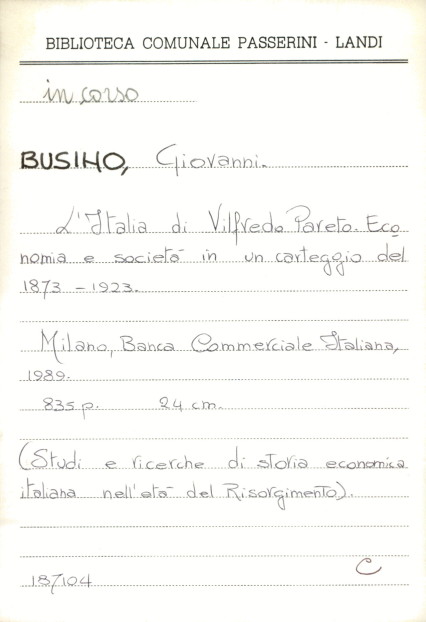 BIBLIOTECA COMUNALE PASSERINI - LANDI
in corso
BUSINO, Giovanni.
L'Italia di Vilfredo Pareto. Eco
nomia e società in un carteggio del
1873 - 1923.
Milano, Banca Commerciale Italiana,
1989.
835 p. 24 cm.
(Studi e ricerche di storia economica
italiana nell'età del Risorgimento).
C
187104